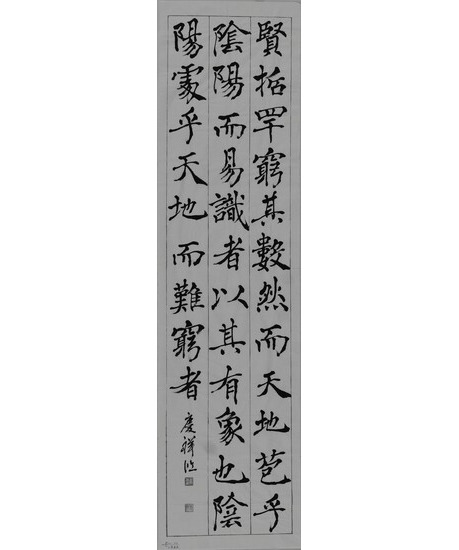 賢哲罕窮其數然而天地苞乎
陰陽而易識者以其有象也陰
陽處乎天地而難窮者
慶祥臨